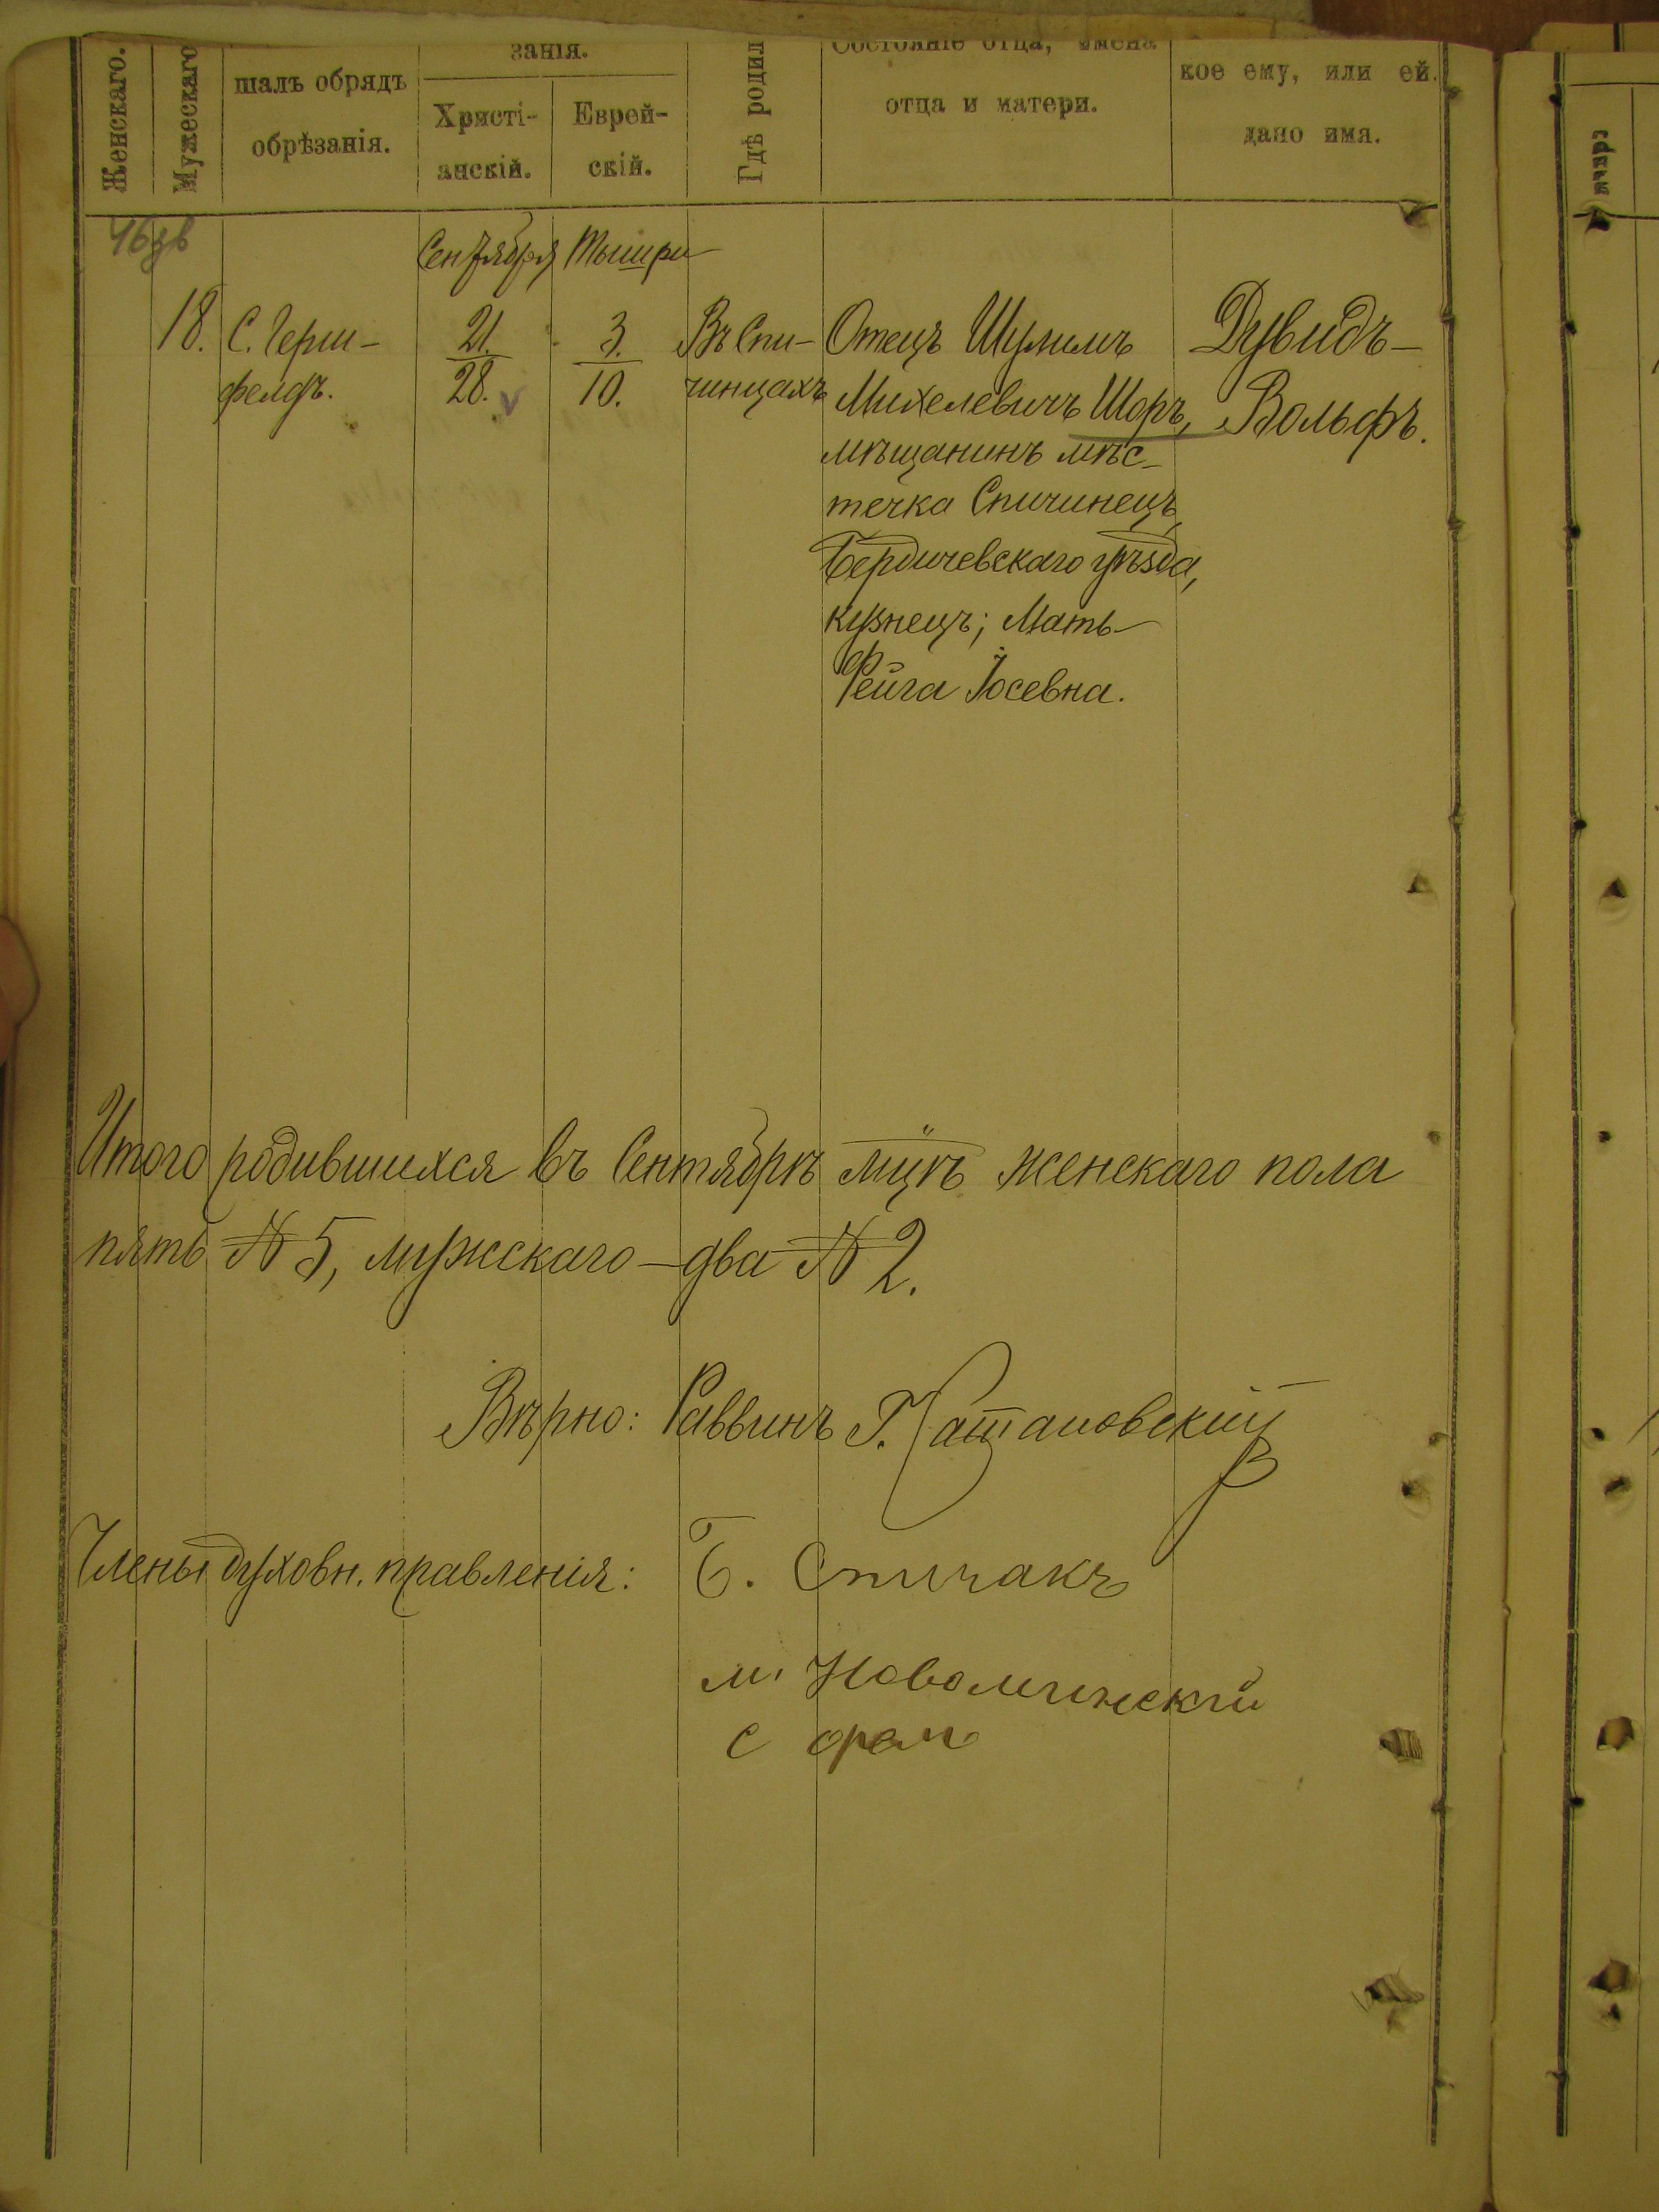 Женскаго.
Мужескаго
шалъ обрядъ
обрѣзанія.
занія.
Христі-
анскій.
Еврей-
скій.
Гдѣ родил
Состояніе отца, имена
отца и матери.
кое ему, или ей.
дано имя.
Сентября Тышри
18. С. Герш- 21. 3. Въ Спи- Отецъ Шулимъ Дувидъ-
фелдъ. 28. 10. чинцахъ Михелевичъ Шоръ, Вольфъ.
мѣщанинъ мѣс-
течка Спичинецъ,
Бердичевскаго уѣзда,
кузнецъ; Мать-
Фейга Іосевна.
Итого родившихся въ Сентябрѣ мцѣ женскаго пола
пять № 5, мужскаго - два № 2.
Вѣрно: Раввинъ Г.
Члены духовн. правленія: Б. Спичакъ
м. Новоминскій
с